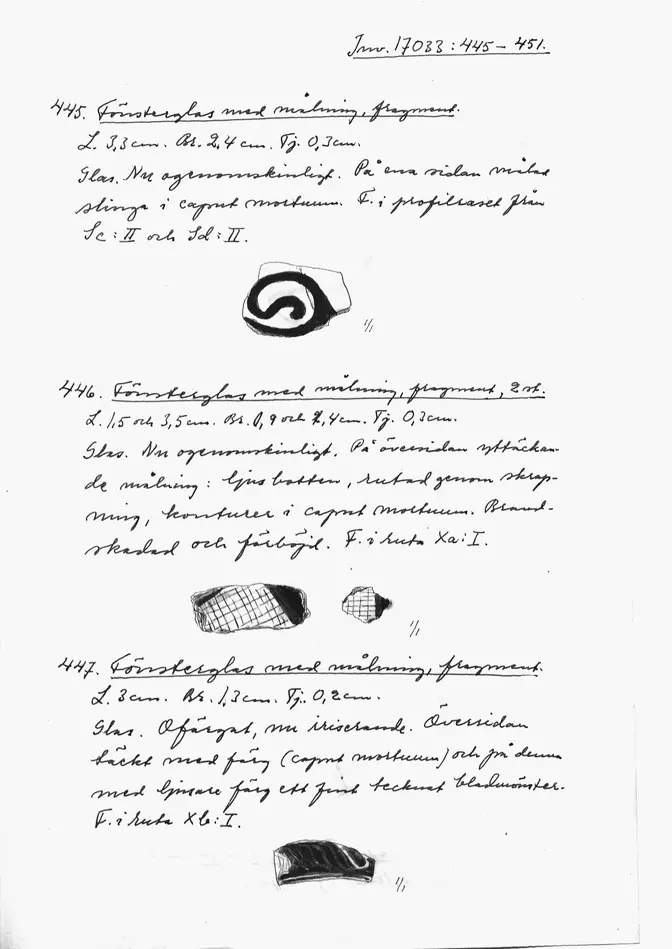 Inv. 17033 : 445 – 451.
445. Fönsterglas med målning, fragment.
L. 3,3 cm. Br. 2,4 cm. Tj. 0,3 cm.
Glas. Nu ogenomskinligt. På ena sidan målad
slinga i caput mortuum. F. i profilraset från
Sc : II och Sd : II.
1/1
446. Fönsterglas med målning, fragment, 2 st.
L. 1,5 och 3,5 cm. Br. 0,9 och 1,4 cm. Tj. 0,3 cm.
Glas. Nu ogenomskinligt. På översidan yttäckan-
de målning : ljus botten, rutad genom skrap-
ning, konturer i caput mortuum. Brand-
skadad och förböjd. F. i ruta Xa : I.
1/1
447. Fönsterglas med målning, fragment.
L. 3 cm. Br. 1,3 cm. Tj. 0,2 cm.
Glas. Ofärgat, nu iriserande. Översidan
täckt med färg (caput mortuum) och på denna
med ljusare färg ett fint tecknat bladmönster.
F. i ruta Xb : I.
1/1